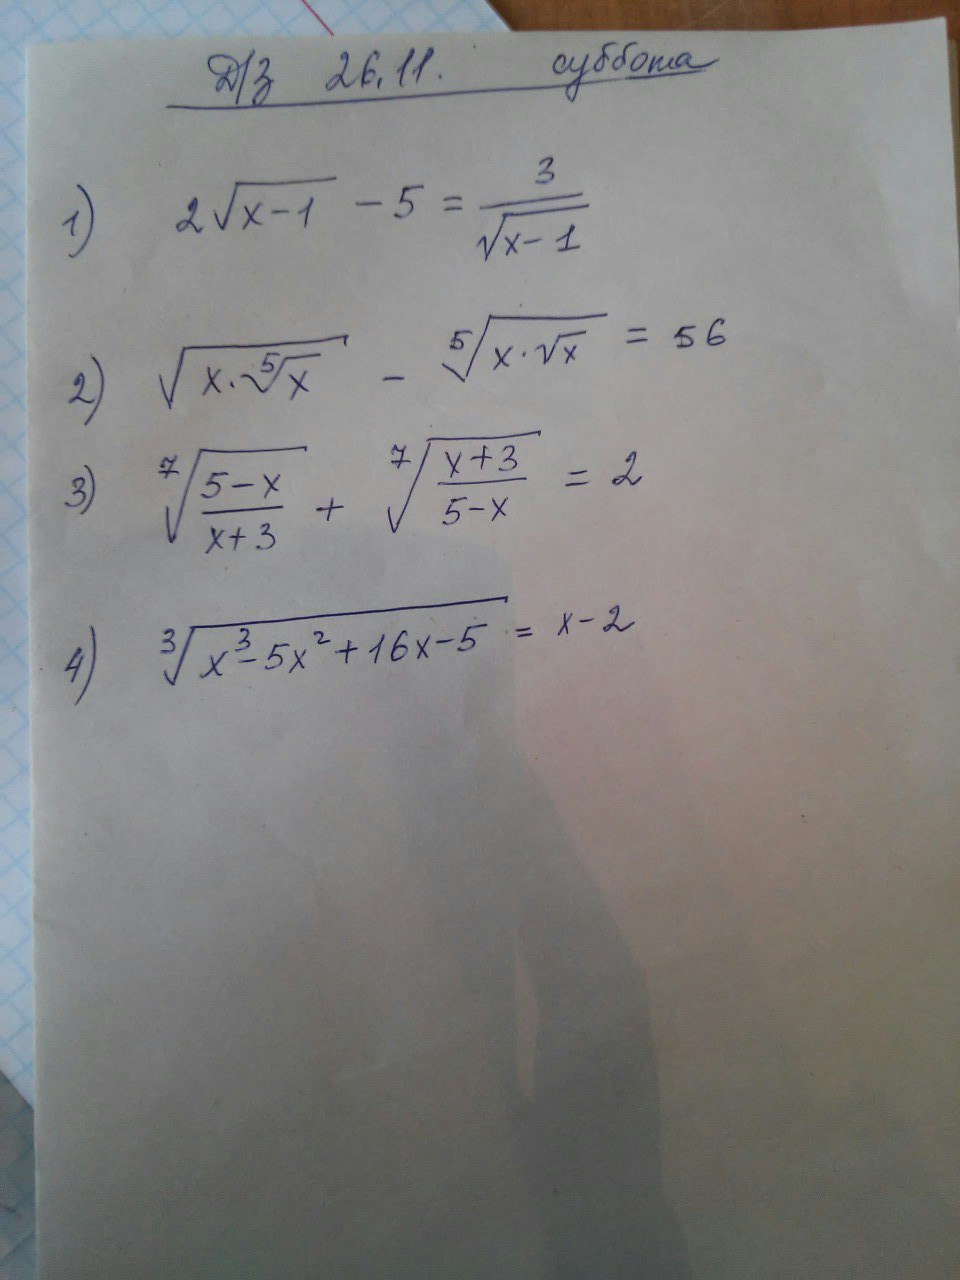 Д/З 26.11. суббота
1) 2√(x-1) - 5 = 3/√(x-1)
2) √(x·⁵√x) - ⁵√(x·√x) = 56
3) ⁷√((5-x)/(x+3)) + ⁷√((x+3)/(5-x)) = 2
4) ³√(x³-5x²+16x-5) = x-2